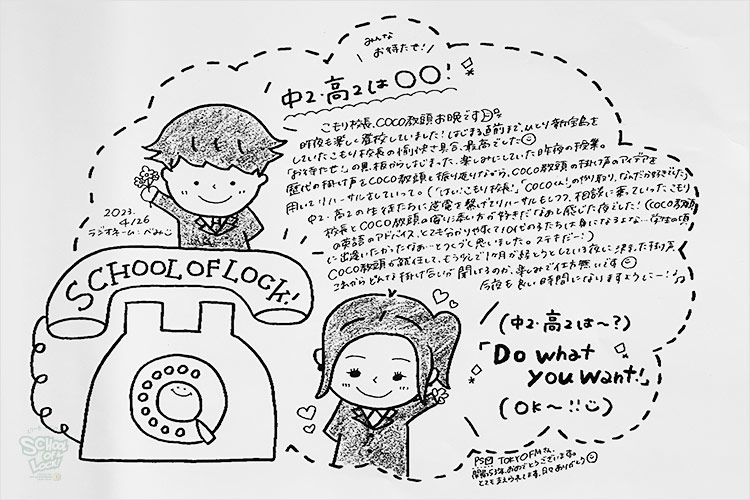 みんな
お待たで!
中2・高2は〇〇!
こもり校長、COCO教頭お晩です
昨夜も楽しく登校していました!はじまる直前まで、ひとり新宝島を
していたこもり校長の愉快で具合、最高でした
「お待たせ!」の黒板からはじまった、楽しみにしていた昨夜の授業。
歴代の掛け声をCOCO教頭と振り返りながら、COCO教頭の掛け声のアイデアを
用いてリハーサルをしていって。(「けい!こもり校長!」「COCOくん!」の作り取り、なんだか好きでした)
中2、高2の生徒たちに逆電を繋げてリハーサルもしつつ、相談に乗っていったこもり
校長とCOCO教頭の寄り添い方が好きだなぁと感じた夜でした!(COCO教頭
の英語のアドバイス、とても分かりやすくて10代の子たちは身になるよな…学生の頃
に出逢いたかったなぁーとつくづく思いました。ステキだー!)
COCO教頭が就任して、もう少しで1ヶ月が経とうとしている夜に、決まった掛け声
これからどんな掛け合いが聞けるのか、楽しみで仕方無いです
今夜も良い時間になりますようにー!♪
2023.
4/26
ラジオネーム:べみこ
SCHOOL OF LOCK!
(中2・高2は〜?)
「Do what
you want!」
(OK〜!!)
PS TOKYO FMさん、
開局53年、おめでとうございます。
とても支えられてます、日々ありがとう
SCHOOL
OF
LOCK!